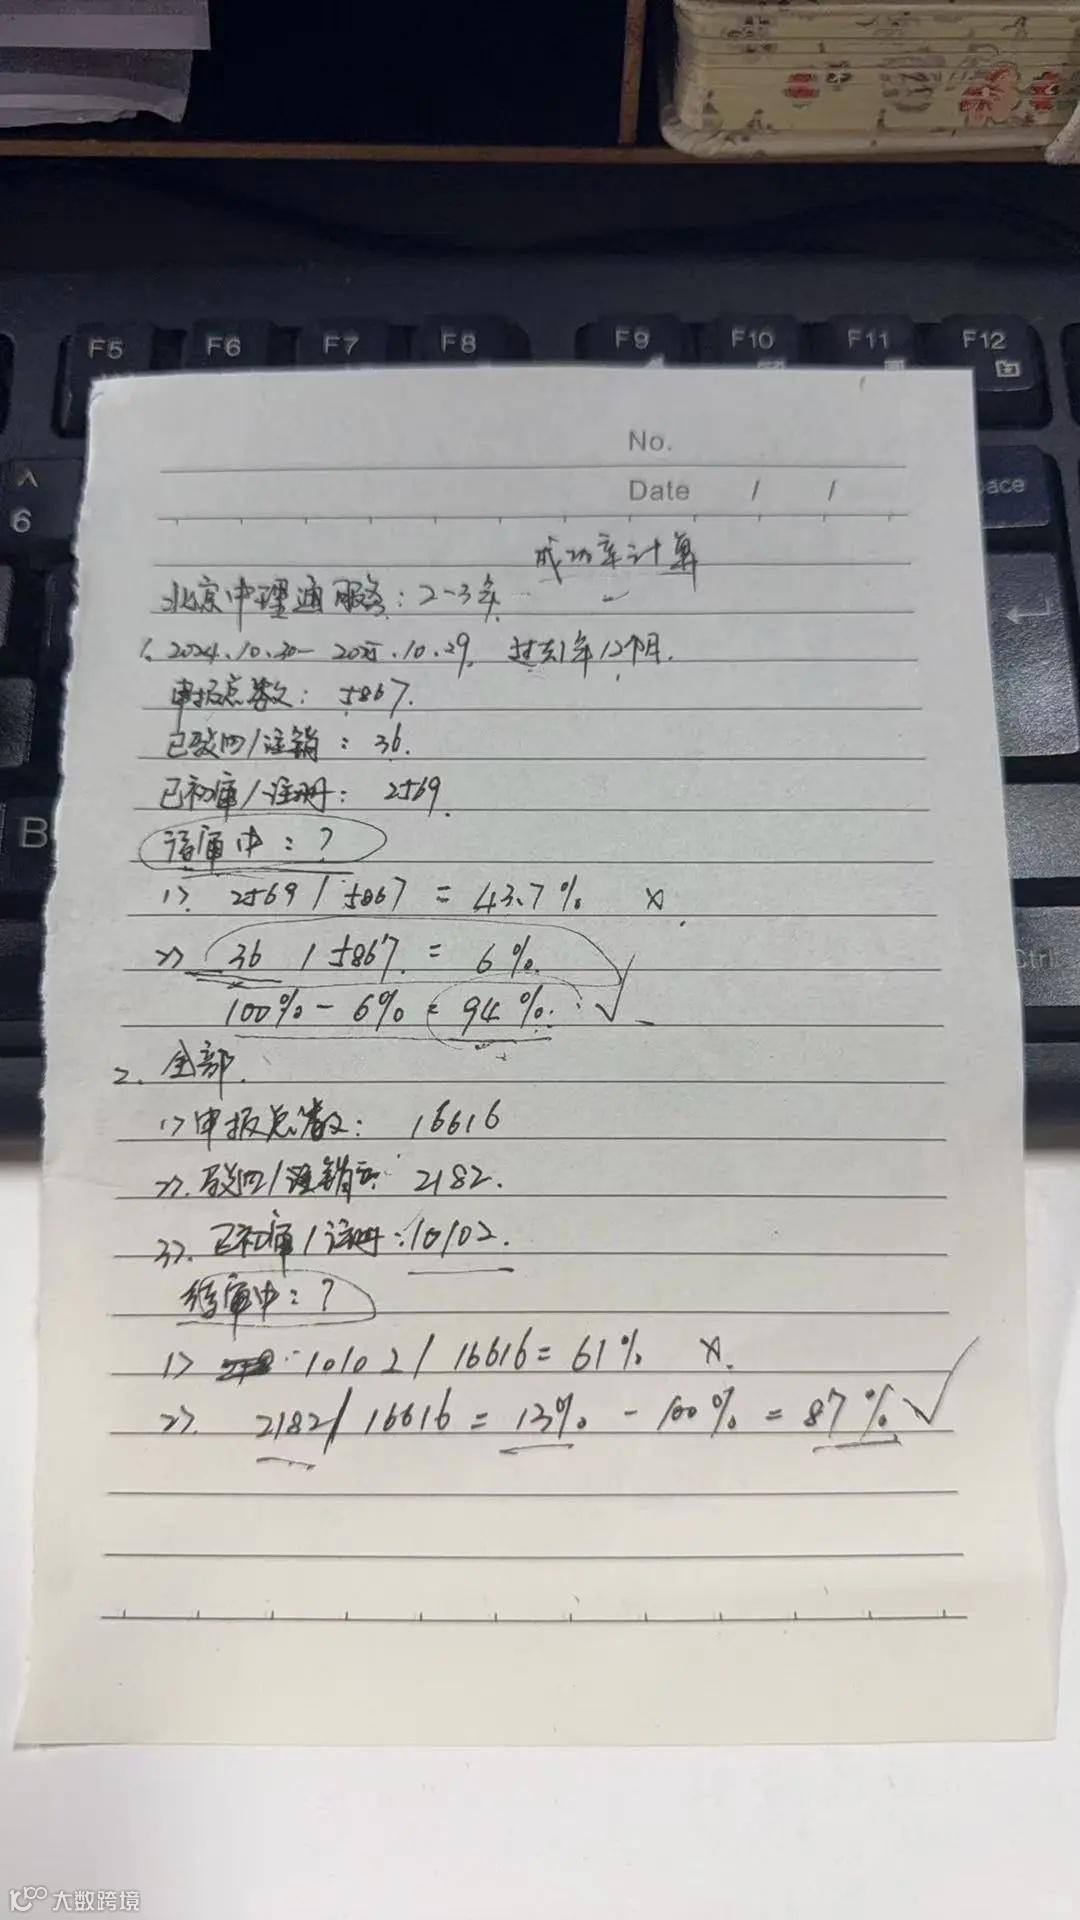 F5 F6 F7 F8 F9 F10 F11 F12
No.
6
Date / /
成功率计算
北京中理通服务：2-3年
1. 2024.10.30-2025.10.29. 过去1年12个月.
申报总数：5867.
已驳回/注销：36.
已初审/注册：2569.
B
待审中：?
1>. 2569/5867=43.7% ×.
2> 36/5867=6%. √
Ctrl
100%-6%=94%.
2. 全部.
1>申报总数：16616
2>.驳回/注销 2182.
3>.已初审/注册：10102.
待审中：?
1> 10102/16616=61% ×.
2>. 2182/16616=13%-100%=87% √
大数跨境